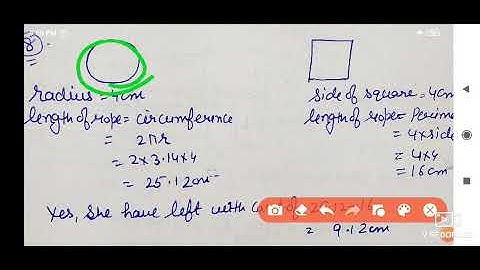 8.
radius = 4cm
length of rope = circumference
= 2πr
= 2×3.14×4
= 25.12cm
side of square = 4cm
length of rope =
= 4×side
= 4×4
= 16cm
Yes, she have left with
= 9.12cm